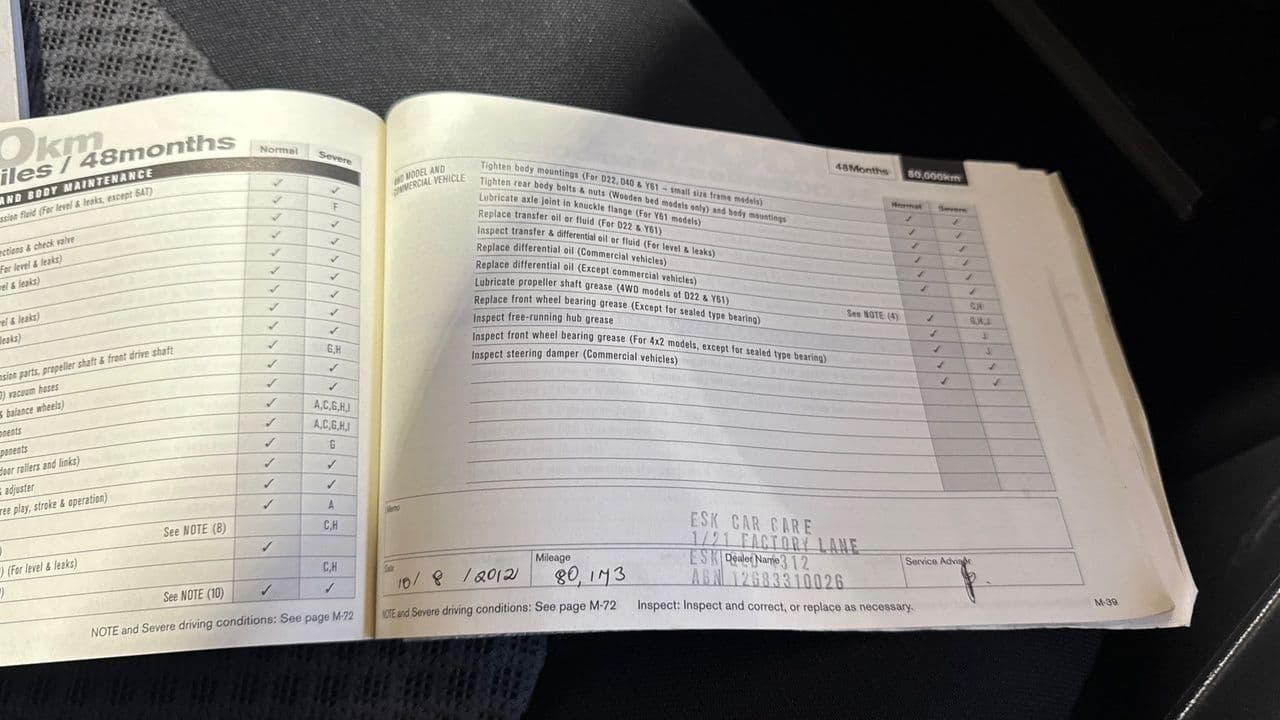 0km
iles / 48months
Normal
Severe
AND BODY MAINTENANCE
ssion fluid (For level & leaks, except 6AT) ✓ ✓
✓ F
ections & check valve ✓ ✓
For level & leaks) ✓ ✓
vel & leaks) ✓ ✓
✓ ✓
vel & leaks) ✓ ✓
leaks) ✓ ✓
✓ ✓
nsion parts, propeller shaft & front drive shaft ✓ G,H
) vacuum hoses ✓ ✓
& balance wheels) ✓ ✓
onents ✓ A,C,G,H,I
ponents ✓ A,C,G,H,I
door rollers and links) ✓ G
& adjuster ✓ ✓
ree play, stroke & operation) ✓ ✓
✓ A
See NOTE (8) C,H
) (For level & leaks) ✓
C,H
See NOTE (10) ✓ ✓
NOTE and Severe driving conditions: See page M-72
48Months
80,000km
Normal
Severe
MODEL AND
COMMERCIAL VEHICLE
Tighten body mountings (For D22, D40 & Y61 – small size frame models) ✓ ✓
Tighten rear body bolts & nuts (Wooden bed models only) and body mountings ✓ ✓
Lubricate axle joint in knuckle flange (For Y61 models) ✓ ✓
Replace transfer oil or fluid (For D22 & Y61) ✓ ✓
Inspect transfer & differential oil or fluid (For level & leaks) ✓ ✓
Replace differential oil (Commercial vehicles) C,H
Replace differential oil (Except commercial vehicles) See NOTE (4) ✓ G,H,J
Lubricate propeller shaft grease (4WD models of D22 & Y61) ✓ J
Replace front wheel bearing grease (Except for sealed type bearing) ✓ J
Inspect free-running hub grease ✓ ✓
Inspect front wheel bearing grease (For 4x2 models, except for sealed type bearing) ✓ ✓
Inspect steering damper (Commercial vehicles)
Memo
ESK CAR CARE
1/21 FACTORY LANE
ESK 312
ABN 12683310026
Date
10/ 8 /2012
Mileage
80,143
Dealer Name
Service Advisor
NOTE and Severe driving conditions: See page M-72
Inspect: Inspect and correct, or replace as necessary.
M-39